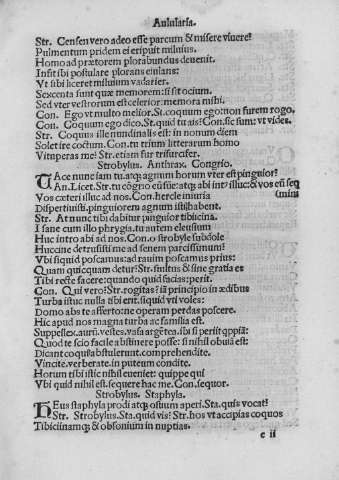 Aulularia.
Str. Censen vero adeo esse parcum & misere viuere?
Pulmentum pridem ei eripuit miluius.
Homo ad prætorem plorabundus deuenit.
Infit ibi postulare plorans eiulans:
Vt sibi liceret miluium vadarier.
Sexcenta sunt quæ memorem: si sit ocium.
Sed vter vestrorum est celerior: memora mihi.
Con. Ego vt multo melior. St. coquum ego: non furem rogo.
Con. Coquum ego dico. St. quid tu ais? Con. sic sum: vt vides.
Str. Coquus ille nundinalis est: in nonum diem
Solet ire coctum. Con. tu trium litterarum homo
Vituperas me? Str. etiam fur trifurcifer.
Strobylus. Anthrax. Congrio.
TAce nunc iam tu. atq3 agnum horum vter est pinguior?
An. Licet. Str. tu cõgrio eũ sũe: atq3 abi int9 illuc: & vos eũ seq
Vos cæteri illuc ad nos. Con. hercle iniuria (mini
Dispertiuisti. pinguiorem agnum isti habent.
Str. At nunc tibi dabitur pinguior tibicina.
I sane cum illo phrygia. tu autem eleusium
Huc intro abi ad nos. Con. o strobyle subdole
Huccine detrusisti me ad senem parcissimum?
Vbi siquid poscamus: ad rauim poscamus prius:
Quam quicquam detur? Str. stultus & sine gratia es
Tibi recte facere: quando quid facias: perit.
Con. Qui vero? Str. rogitas? iã principio in ædibus
Turba istuc nulla tibi erit. siquid vti voles:
Domo abs te afferto: ne operam perdas poscere.
Hic apud nos magna turba ac familia est.
Supellex. aurũ. vestes. vasa argẽtea. ibi si perijt qppiã:
Quod te scio facile abstinere posse: si nihil obuiã est:
Dicant coqui abstulerunt. comprehendite.
Vincite. verberate. in puteum condite.
Horum tibi istic nihil eueniet: quippe qui
Vbi quid nihil est. sequere hac me. Con. sequor.
Strobylus. Staphyla.
HEus staphyla prodi atq3 ostium aperi. Sta. quis vocat?
Str. Strobylus. Sta. quid vis? Str. hos vt accipias coquos
Tibicinamq3 & obsonium in nuptias.
e ii